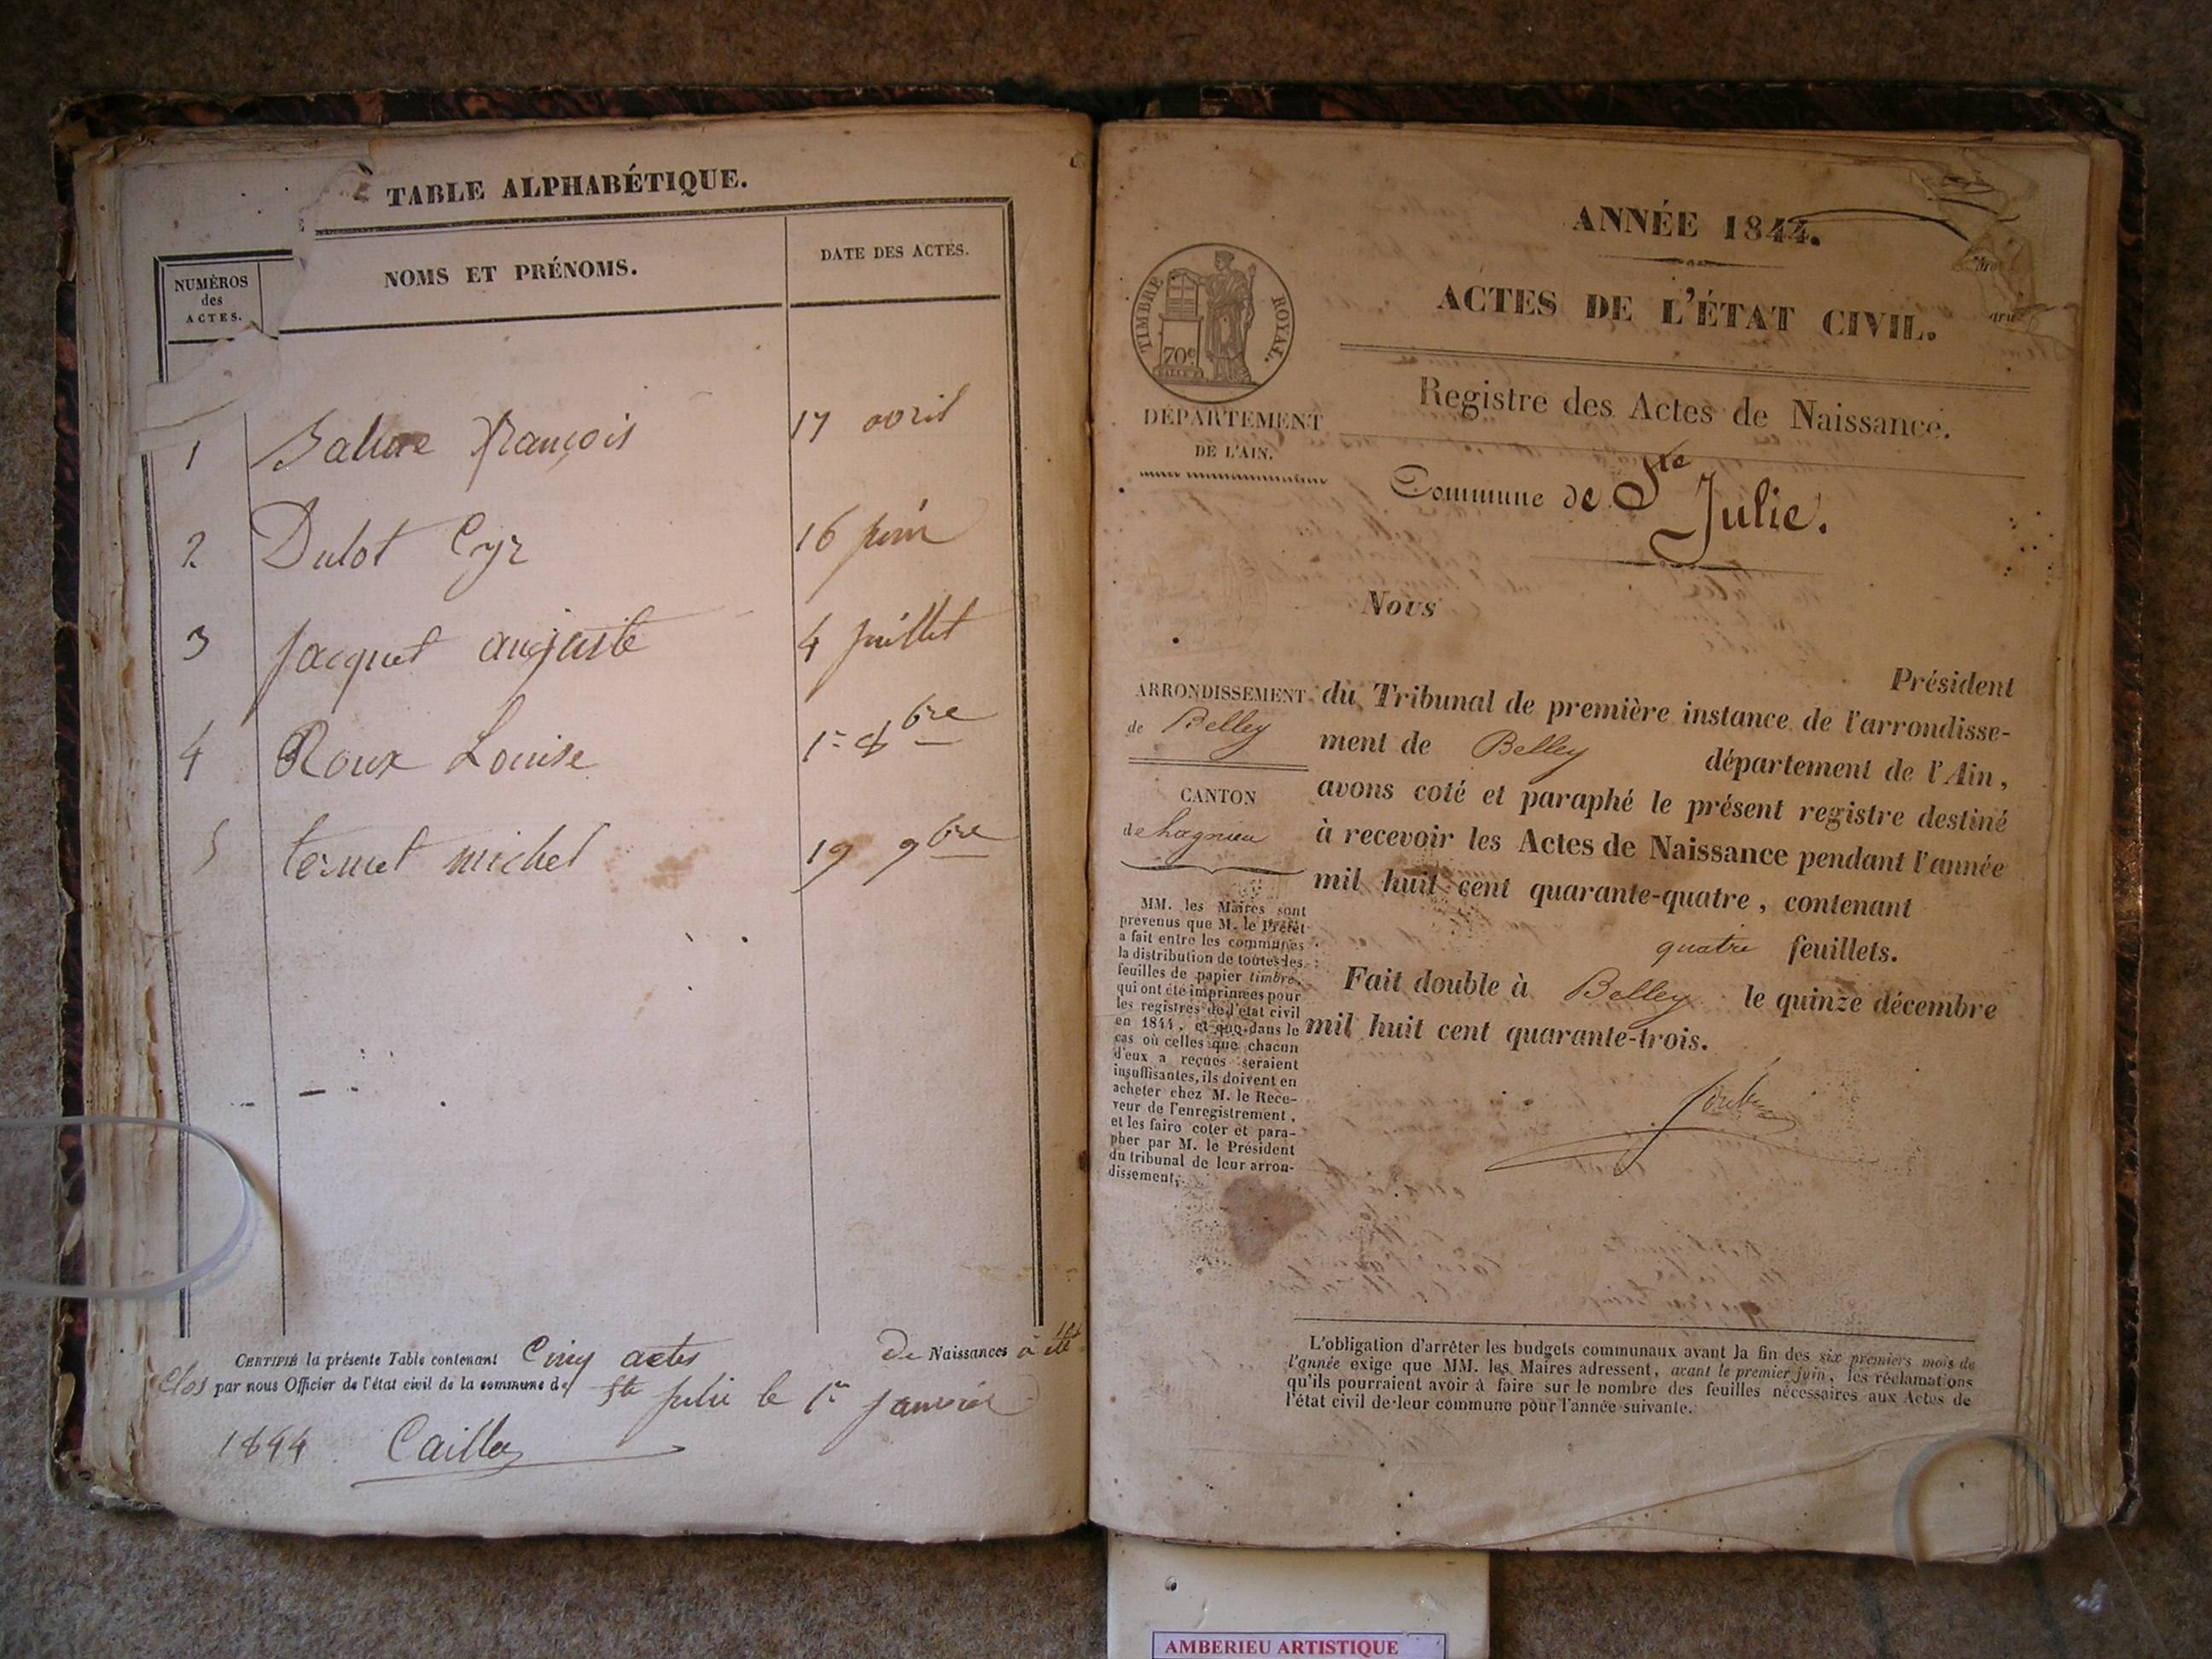 TABLE ALPHABÉTIQUE.
NUMÉROS
des
ACTES.
NOMS ET PRÉNOMS.
DATE DES ACTES.
1 François 17 avril
2 Dulot Cyr 16 juin
3 Jacquet auguste 4 juillet
4 Roux Louise 1er 8bre
5 ternet michel 19 9bre
CERTIFIÉ la présente Table contenant Cinq actes De Naissances à été
Clos par nous Officier de l'état civil de la commune de Ste Julie le 1er Janvier
1844 Caillo
ANNÉE 1844.
ACTES DE L'ÉTAT CIVIL.
TIMBRE ROYAL.
70c
Registre des Actes de Naissance.
DÉPARTEMENT
DE L'AIN.
Commune de Ste
Julie.
Nous
Président
ARRONDISSEMENT
de Belley
CANTON
de Lagnieu
du Tribunal de première instance de l'arrondisse-
ment de Belley département de l'Ain,
avons coté et paraphé le présent registre destiné
à recevoir les Actes de Naissance pendant l'année
mil huit cent quarante-quatre, contenant
quatre feuillets.
Fait double à Belley le quinze décembre
mil huit cent quarante-trois.
MM. les Maires sont
prévenus que M. le Préfet
a fait entre les communes
la distribution de toutes les
feuilles de papier timbré,
qui ont été imprimées pour
les registres de l'état civil
en 1844, et que dans le
cas où celles que chacun
d'eux a reçues seraient
insuffisantes, ils doivent en
acheter chez M. le Rece-
veur de l'enregistrement,
et les faire coter et para-
pher par M. le Président
du tribunal de leur arron-
dissement.
L'obligation d'arrêter les budgets communaux avant la fin des six premiers mois de
l'année exige que MM. les Maires adressent, avant le premier juin, les réclamations
qu'ils pourraient avoir à faire sur le nombre des feuilles nécessaires aux Actes de
l'état civil de leur commune pour l'année suivante.
AMBERIEU ARTISTIQUE